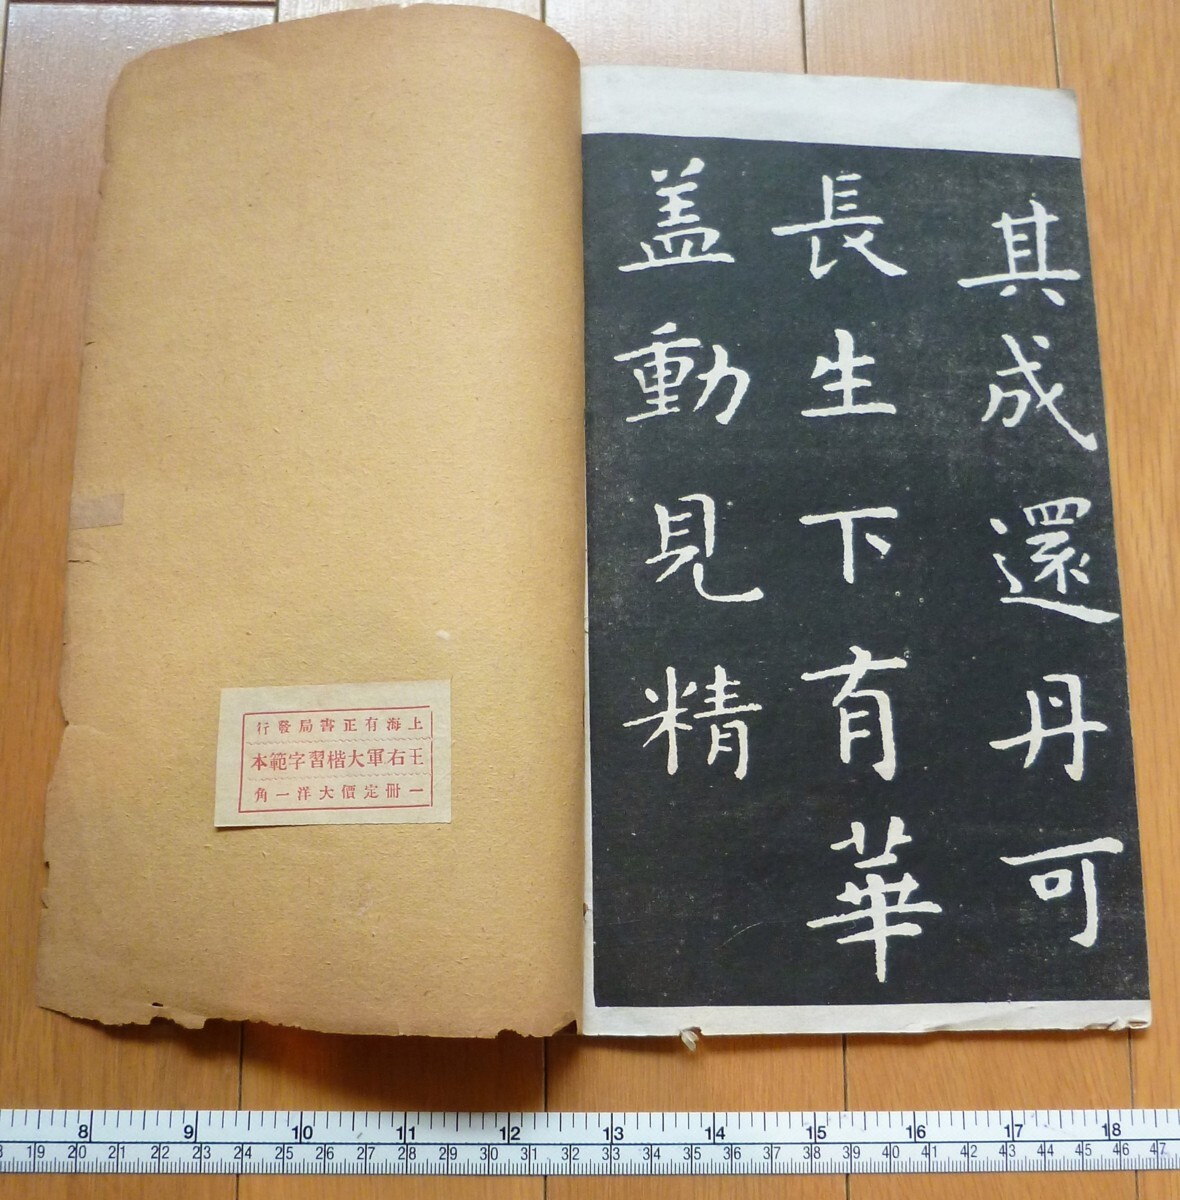 其成還丹可
長生下有華
盖動見精
上海有正書局發行
王右軍大楷習字範本
一冊定價大洋一角
8 9 10 11 12 13 14 15 16 17 18
19 20 21 22 23 24 25 26 27 28 29 30 31 32 33 34 35 36 37 38 39 40 41 42 43 44 45 46 47